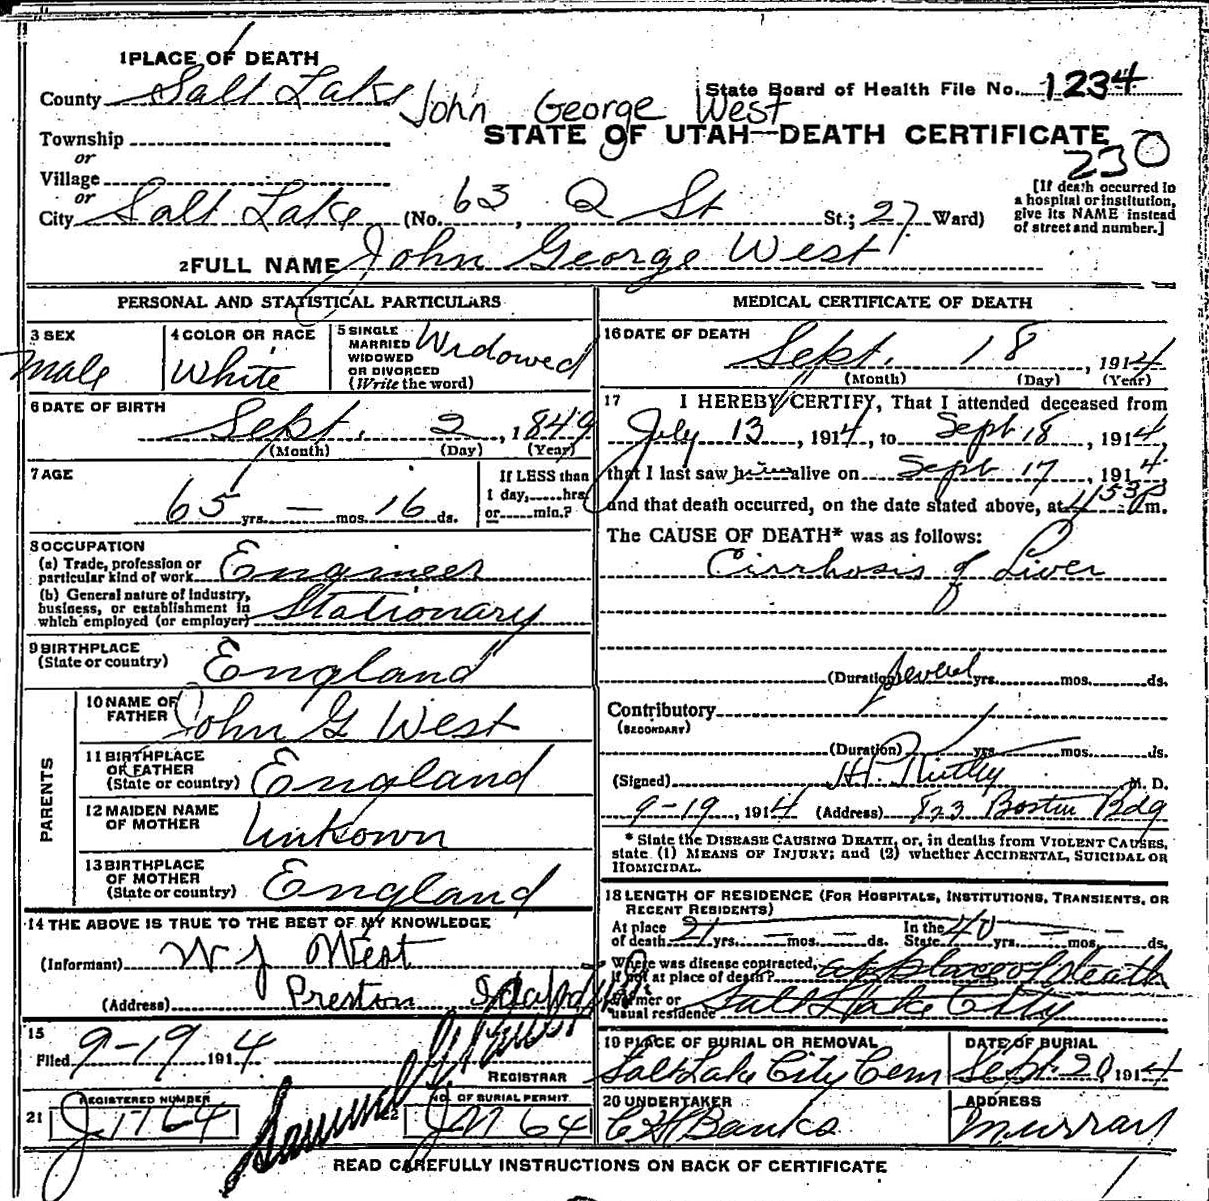 1 PLACE OF DEATH
County Salt Lake
John George West
State Board of Health File No. 1234
STATE OF UTAH—DEATH CERTIFICATE
230
Township
or
Village
or
City Salt Lake (No. 63, Q St St.; 27 Ward)
[If death occurred in
a hospital or institution,
give its NAME instead
of street and number.]
2 FULL NAME John George West
PERSONAL AND STATISTICAL PARTICULARS
3 SEX
male
4 COLOR OR RACE
White
5 SINGLE
MARRIED
WIDOWED
OR DIVORCED
(Write the word)
Widowed
6 DATE OF BIRTH
Sept. 2, 1849
(Month) (Day) (Year)
7 AGE
65 yrs. — mos. 16 ds.
If LESS than
1 day,......hrs.
or......min.?
8 OCCUPATION
(a) Trade, profession or
particular kind of work Engineer
(b) General nature of industry,
business, or establishment in
which employed (or employer) Stationary
9 BIRTHPLACE
(State or country) England
PARENTS
10 NAME OF
FATHER John G West
11 BIRTHPLACE
OF FATHER
(State or country) England
12 MAIDEN NAME
OF MOTHER Unkown
13 BIRTHPLACE
OF MOTHER
(State or country) England
14 THE ABOVE IS TRUE TO THE BEST OF MY KNOWLEDGE
(Informant) W J West
(Address) Preston Idaho
15
Filed 9-19 1914
REGISTRAR
21 REGISTERED NUMBER
J 1764
22 NO. OF BURIAL PERMIT
MEDICAL CERTIFICATE OF DEATH
16 DATE OF DEATH
Sept. 18, 1914
(Month) (Day) (Year)
17 I HEREBY CERTIFY, That I attended deceased from
July 13, 1914, to Sept 18, 1914,
that I last saw him alive on Sept 17, 1914,
and that death occurred, on the date stated above, at m.
The CAUSE OF DEATH* was as follows:
Cirrhosis of Liver
(Duration) several yrs. mos. ds.
Contributory
(SECONDARY)
(Duration) yrs. mos. ds.
(Signed) M. D.
9-19, 1914 (Address) 823 Boston Bdg
* State the DISEASE CAUSING DEATH, or, in deaths from VIOLENT CAUSES,
state (1) MEANS OF INJURY; and (2) whether ACCIDENTAL, SUICIDAL OR
HOMICIDAL.
18 LENGTH OF RESIDENCE (FOR HOSPITALS, INSTITUTIONS, TRANSIENTS, OR
RECENT RESIDENTS)
At place
of death 21 yrs. — mos. — ds. In the
State 40 yrs. — mos. ds.
Where was disease contracted,
if not at place of death? at place of death
Former or
usual residence Salt Lake City
19 PLACE OF BURIAL OR REMOVAL
Salt Lake City Cem
DATE OF BURIAL
Sept. 20, 1914
20 UNDERTAKER
C H Banks
ADDRESS
Murray
READ CAREFULLY INSTRUCTIONS ON BACK OF CERTIFICATE